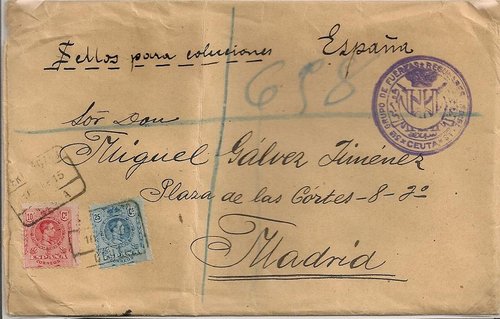 Sellos para coluciones España
698
Sōr Don
Miguel Gálvez Jiménez
Plaza de las Córtes-8-2º
Madrid
GRUPO DE FUERZAS REGULARES
CEUTA
10 Cs
ESPAÑA
CORREOS
25 Cs
ESPAÑA
15
10